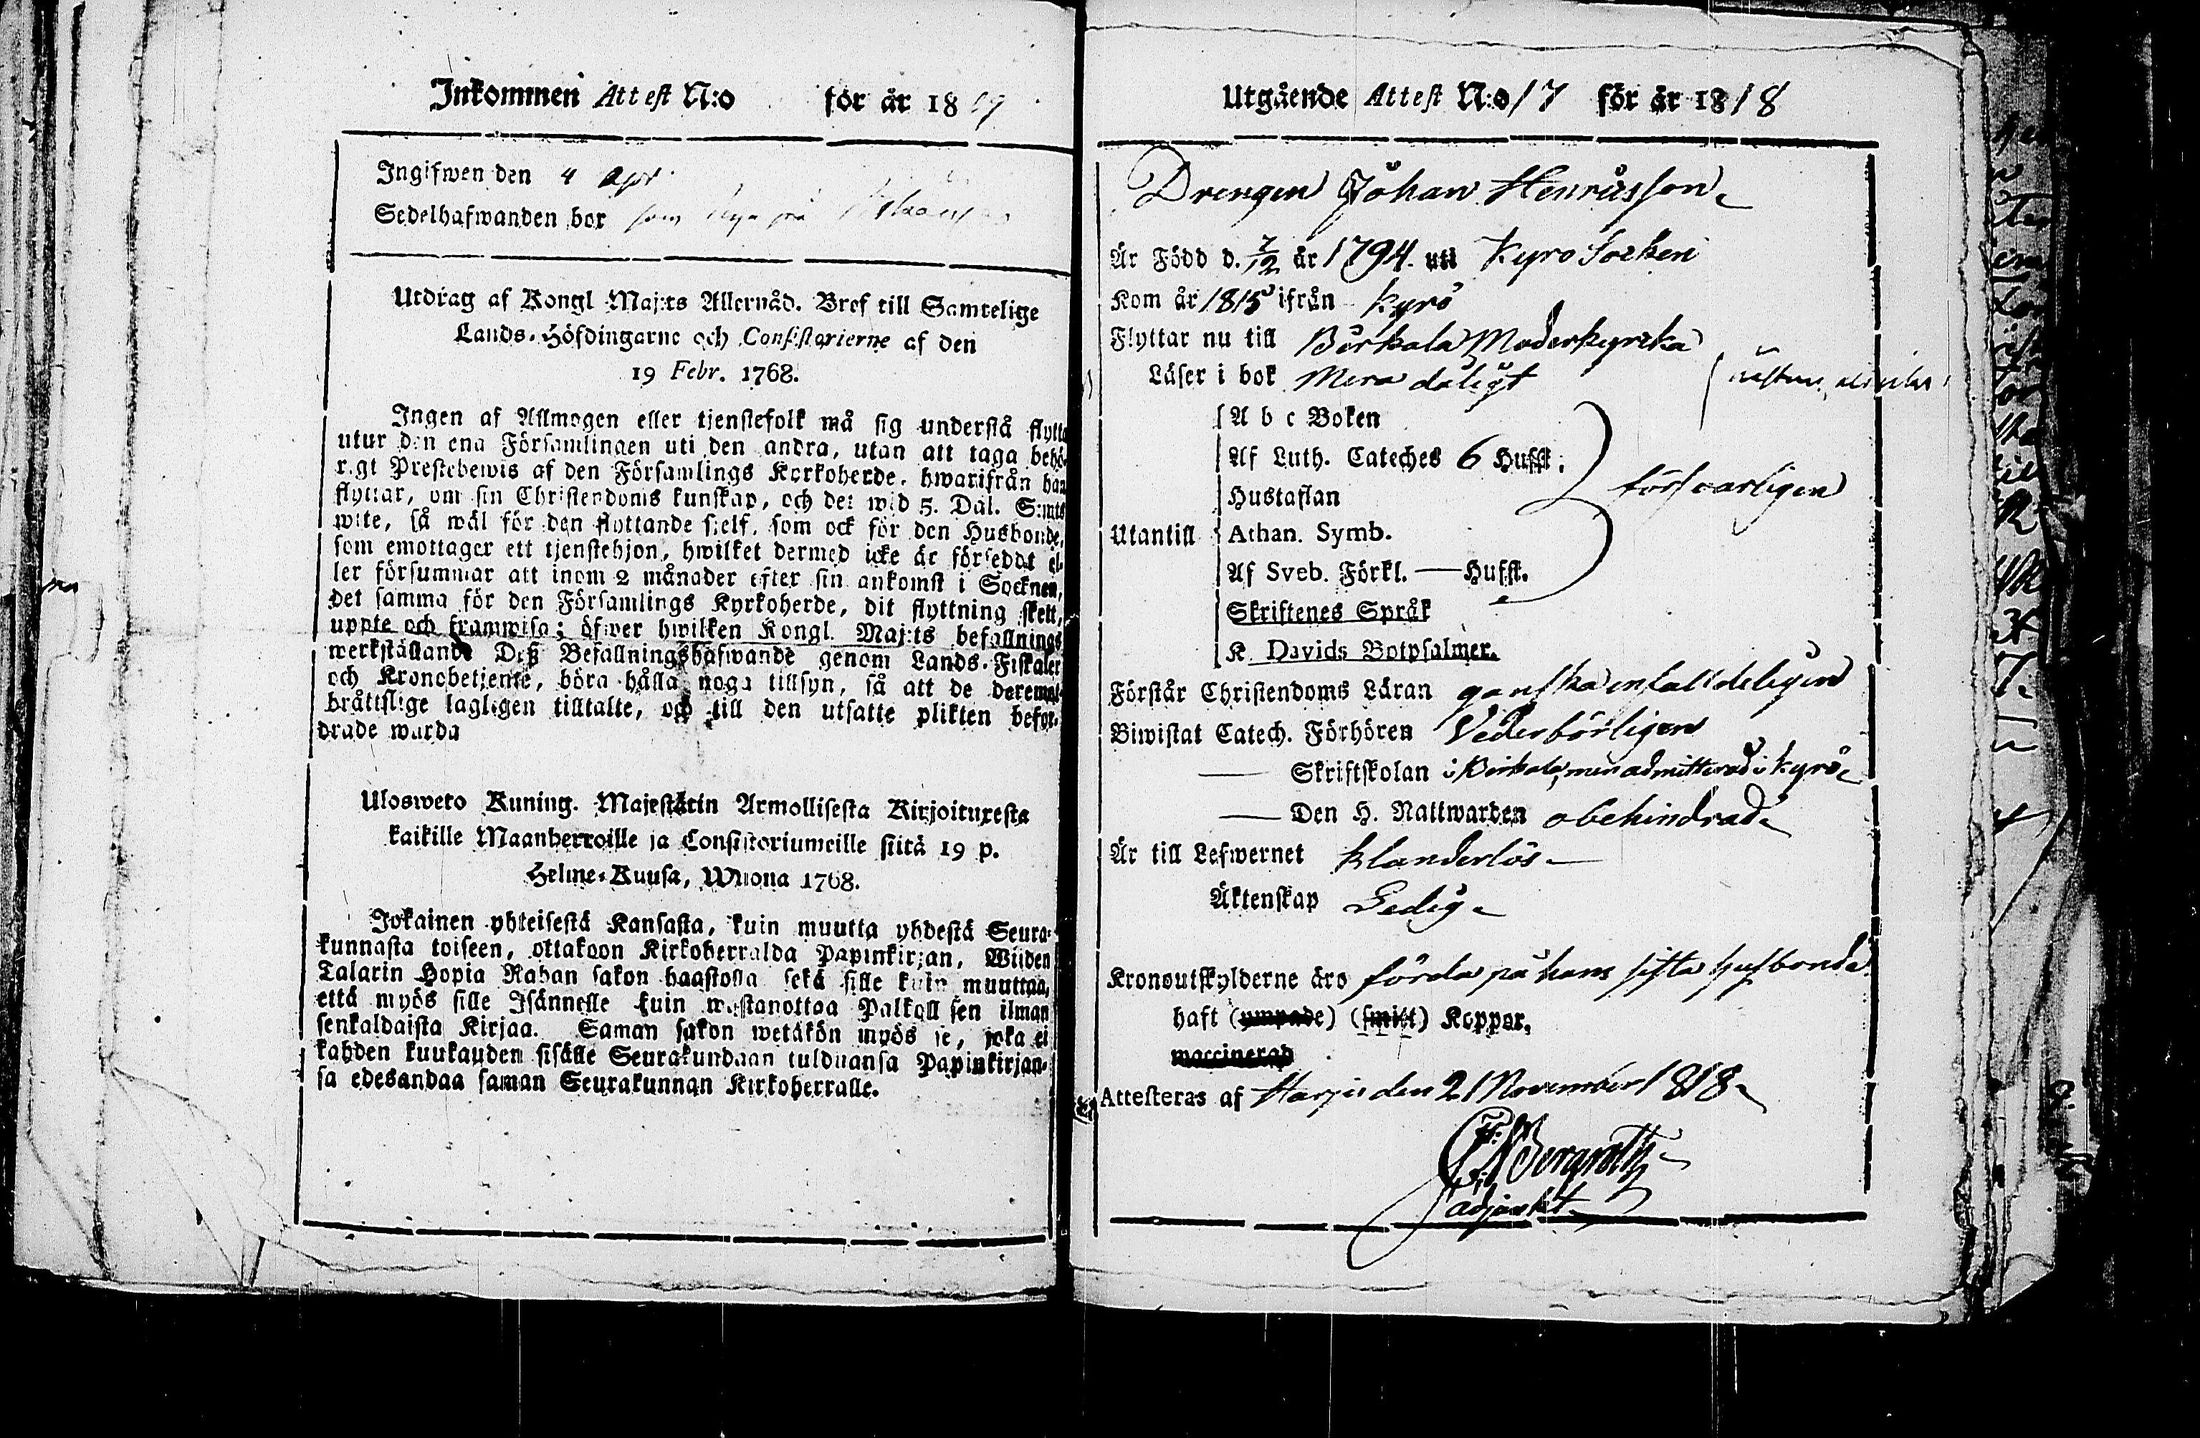 Inkommen Attest N:o för år 1819
Ingifwen den 4 Apr
Sedelhafwanden bor som
Utdrag af Kongl Maj:ts Allernåd. Bref till Samtelige
Lands-Höfdingarne och Consistorierne af den
19 Febr. 1768.
Ingen af Allmogen eller tjenstefolk må sig understå flytta
utur den ena Församlingen uti den andra, utan att taga behö-
r.gt Prestebewis af den Församlings Kyrkoherde, hwarifrån han
flyttar, om sin Christendoms kunskap, och det wid 5. Dal. S:mts
wite, så wäl för den flyttande sjelf, som ock för den Husbonde,
som emottager ett tjenstehjon, hwilket dermed icke är förseddt el-
ler försummar att inom 2 månader efter sin ankomst i Socknen,
det samma för den Församlings Kyrkoherde, dit flyttning skett,
uppte och framwisa; öfwer hwilken Kongl. Maj:ts befallnings
werkställande Deß Befallningshafwande genom Lands-Fiskaler
och Kronobetjente, böra hålla noga tillsyn, så att de deremot
bråttslige lagligen tilltalte, och till den utsatte plikten befor-
drade warda
Ulosweto Kuning. Majestätin Armollisesta Kirjoituxesta
kaikille Maanherroille ja Consistoriumeille siitä 19 p.
Helme-Kuusa, Wuona 1768.
Jokainen yhteisestä Kansasta, kuin muutta yhdestä Seura-
kunnasta toiseen, ottakoon Kirkoherralda Papinkirjan, Wiiden
Talarin Hopia Rahan sakon haastolla sekä sille kuin muuttaa,
että myös sille Isännelle kuin wastanottaa Palkollisen ilman
senkaldaista Kirjaa. Saman sakon wetäkön myös se, joka ei
kahden kuukauden sisälle Seurakundaan tulduansa Papinkirjan-
sa edesandaa saman Seurakunnan Kirkoherralle.
Utgående Attest N:o 17 för år 1818
Drengen Johan Henricsson
Är Född d. 7/12 år 1794. uti Kyro Socken
Kom år 1815 ifrån Kyro
Flyttar nu till Birkala Moderkyrcka
Läser i bok Mera dåligt
A b c Boken
Af Luth. Cateches 6 Husst.
Hustaflan
försvarligen
Utantill Athan. Symb.
Af Sveb. Förkl. — Husst.
Skriftenes Språk
K. Davids Botpsalmer.
Förstår Christendoms Läran ganska enfaldeligen
Biwistat Catech. Förhören Vederbörligen
— Skriftskolan i Birkala, men admitterad i Kyro
— Den H. Nattwarden obehindrad
Är till Lefwernet klanderlös —
Äktenskap Ledig
Kronoutskylderne äro förda på hans sista husbonde
haft (ympade) (smitt) Koppor,
vaccinerad
Attesteras af Harju den 21 November 1818
Bergroth
adjunkt